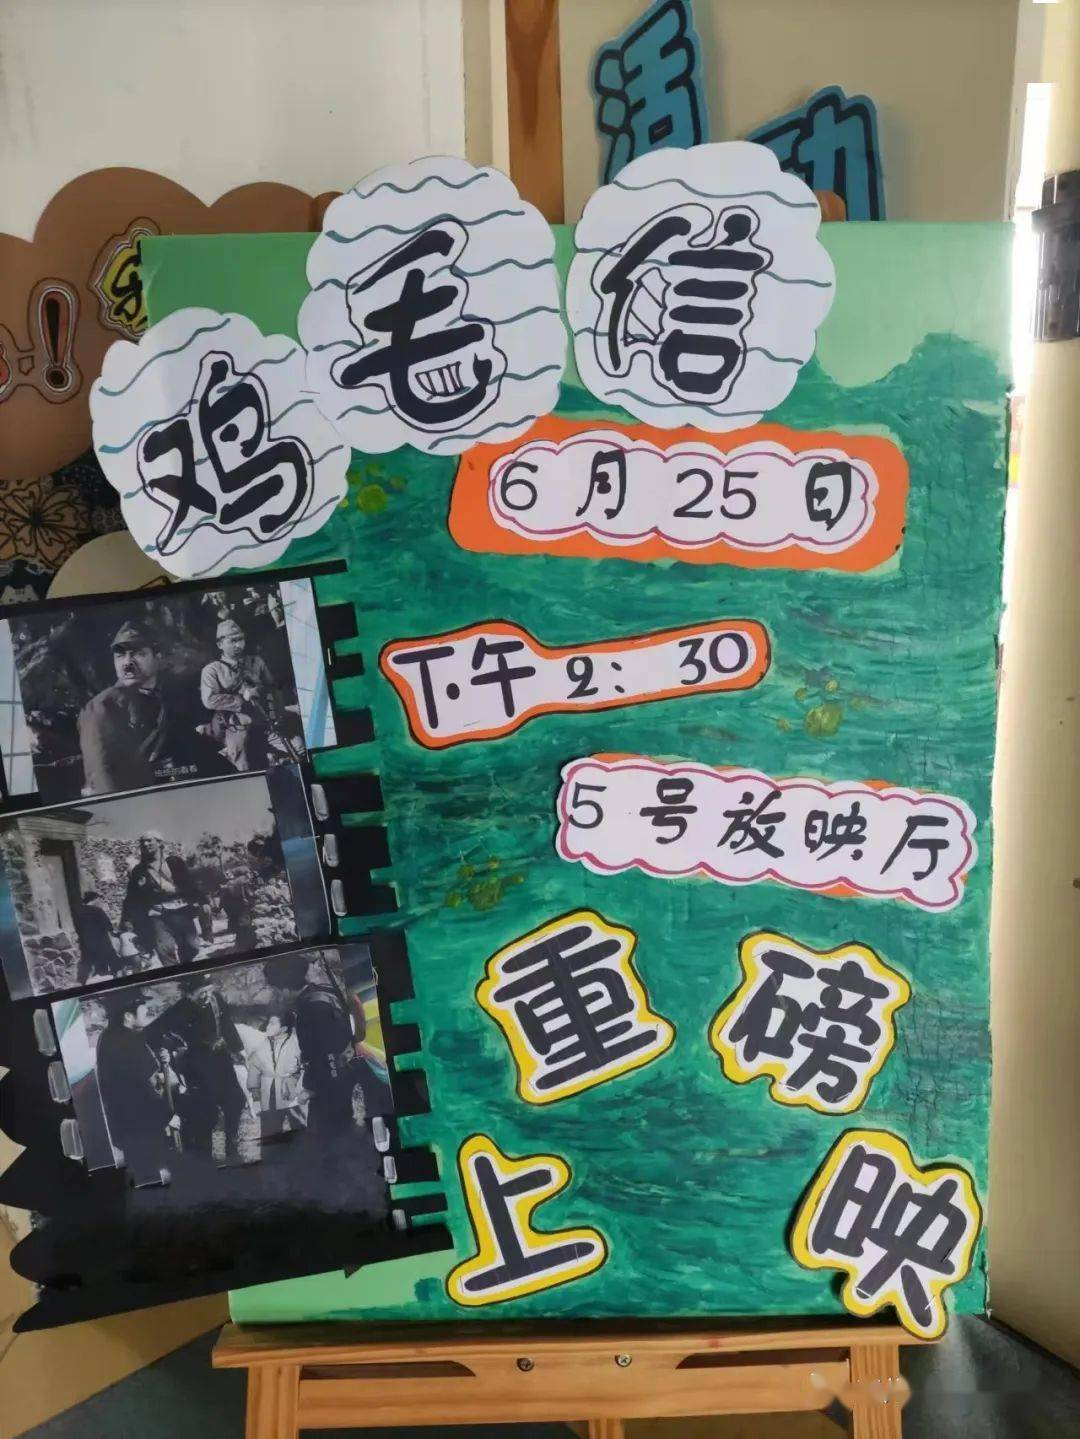 活动
鸡毛信
6月25日
下午2:30
5号放映厅
重磅
上映